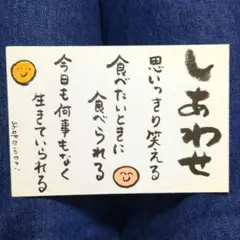 しあわせ
思いっきり笑える
食べたいときに
食べられる
今日も何事もなく
生きていられる